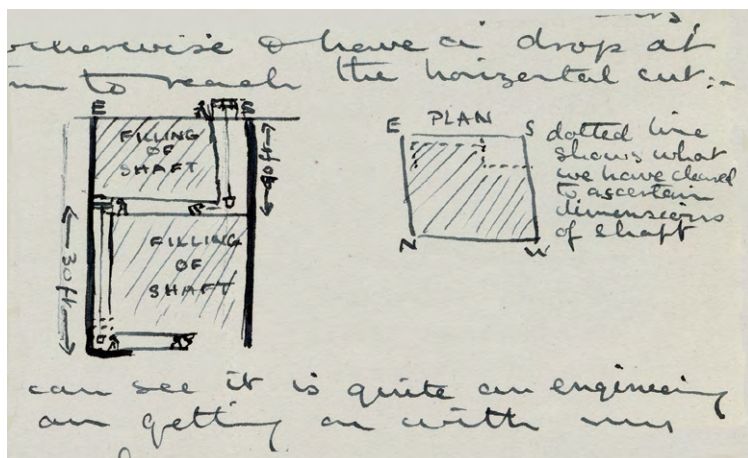 otherwise & have a drop at
to reach the horizontal cut:-
E S
FILLING
OF
SHAFT
30ft
FILLING
OF
SHAFT
30ft
PLAN
E S
N W
dotted line
shows what
we have cleared
to ascertain
dimensions
of shaft
can see it is quite an engineering
am getting on with my